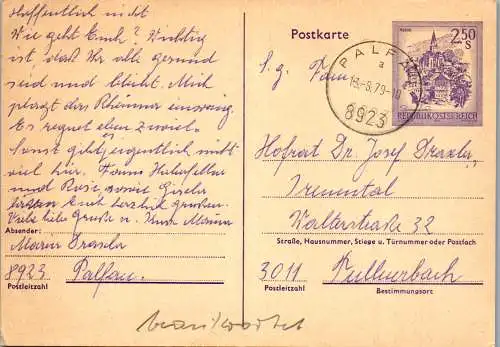 Hoffentlich nicht
Wie geht Euch? Wichtig
ist, daß Ihr alle gesund
seid und bleibt. Mich
plagt das Rheuma
Es regnet eben zuviel.
Sonst gibts eigentlich nicht
viel hier. Fam. 
und Rosi, sowie Gisela
lassen Euch herzlich grüßen.
Viele liebe Grüße v. Eurer
Absender:
Maria Draxler
8923 Palfau.
Postleitzahl
Postkarte
2.50
S
REPUBLIK ÖSTERREICH
PALFAU
a
8923
S. g. Fam.
Hofrat Dr. Josef Draxler
Irenental
Walterstraße 32
Straße, Hausnummer, Stiege u. Türnummer oder Postfach
3011 Tullnerbach
Postleitzahl
Bestimmungsort
beantwortet